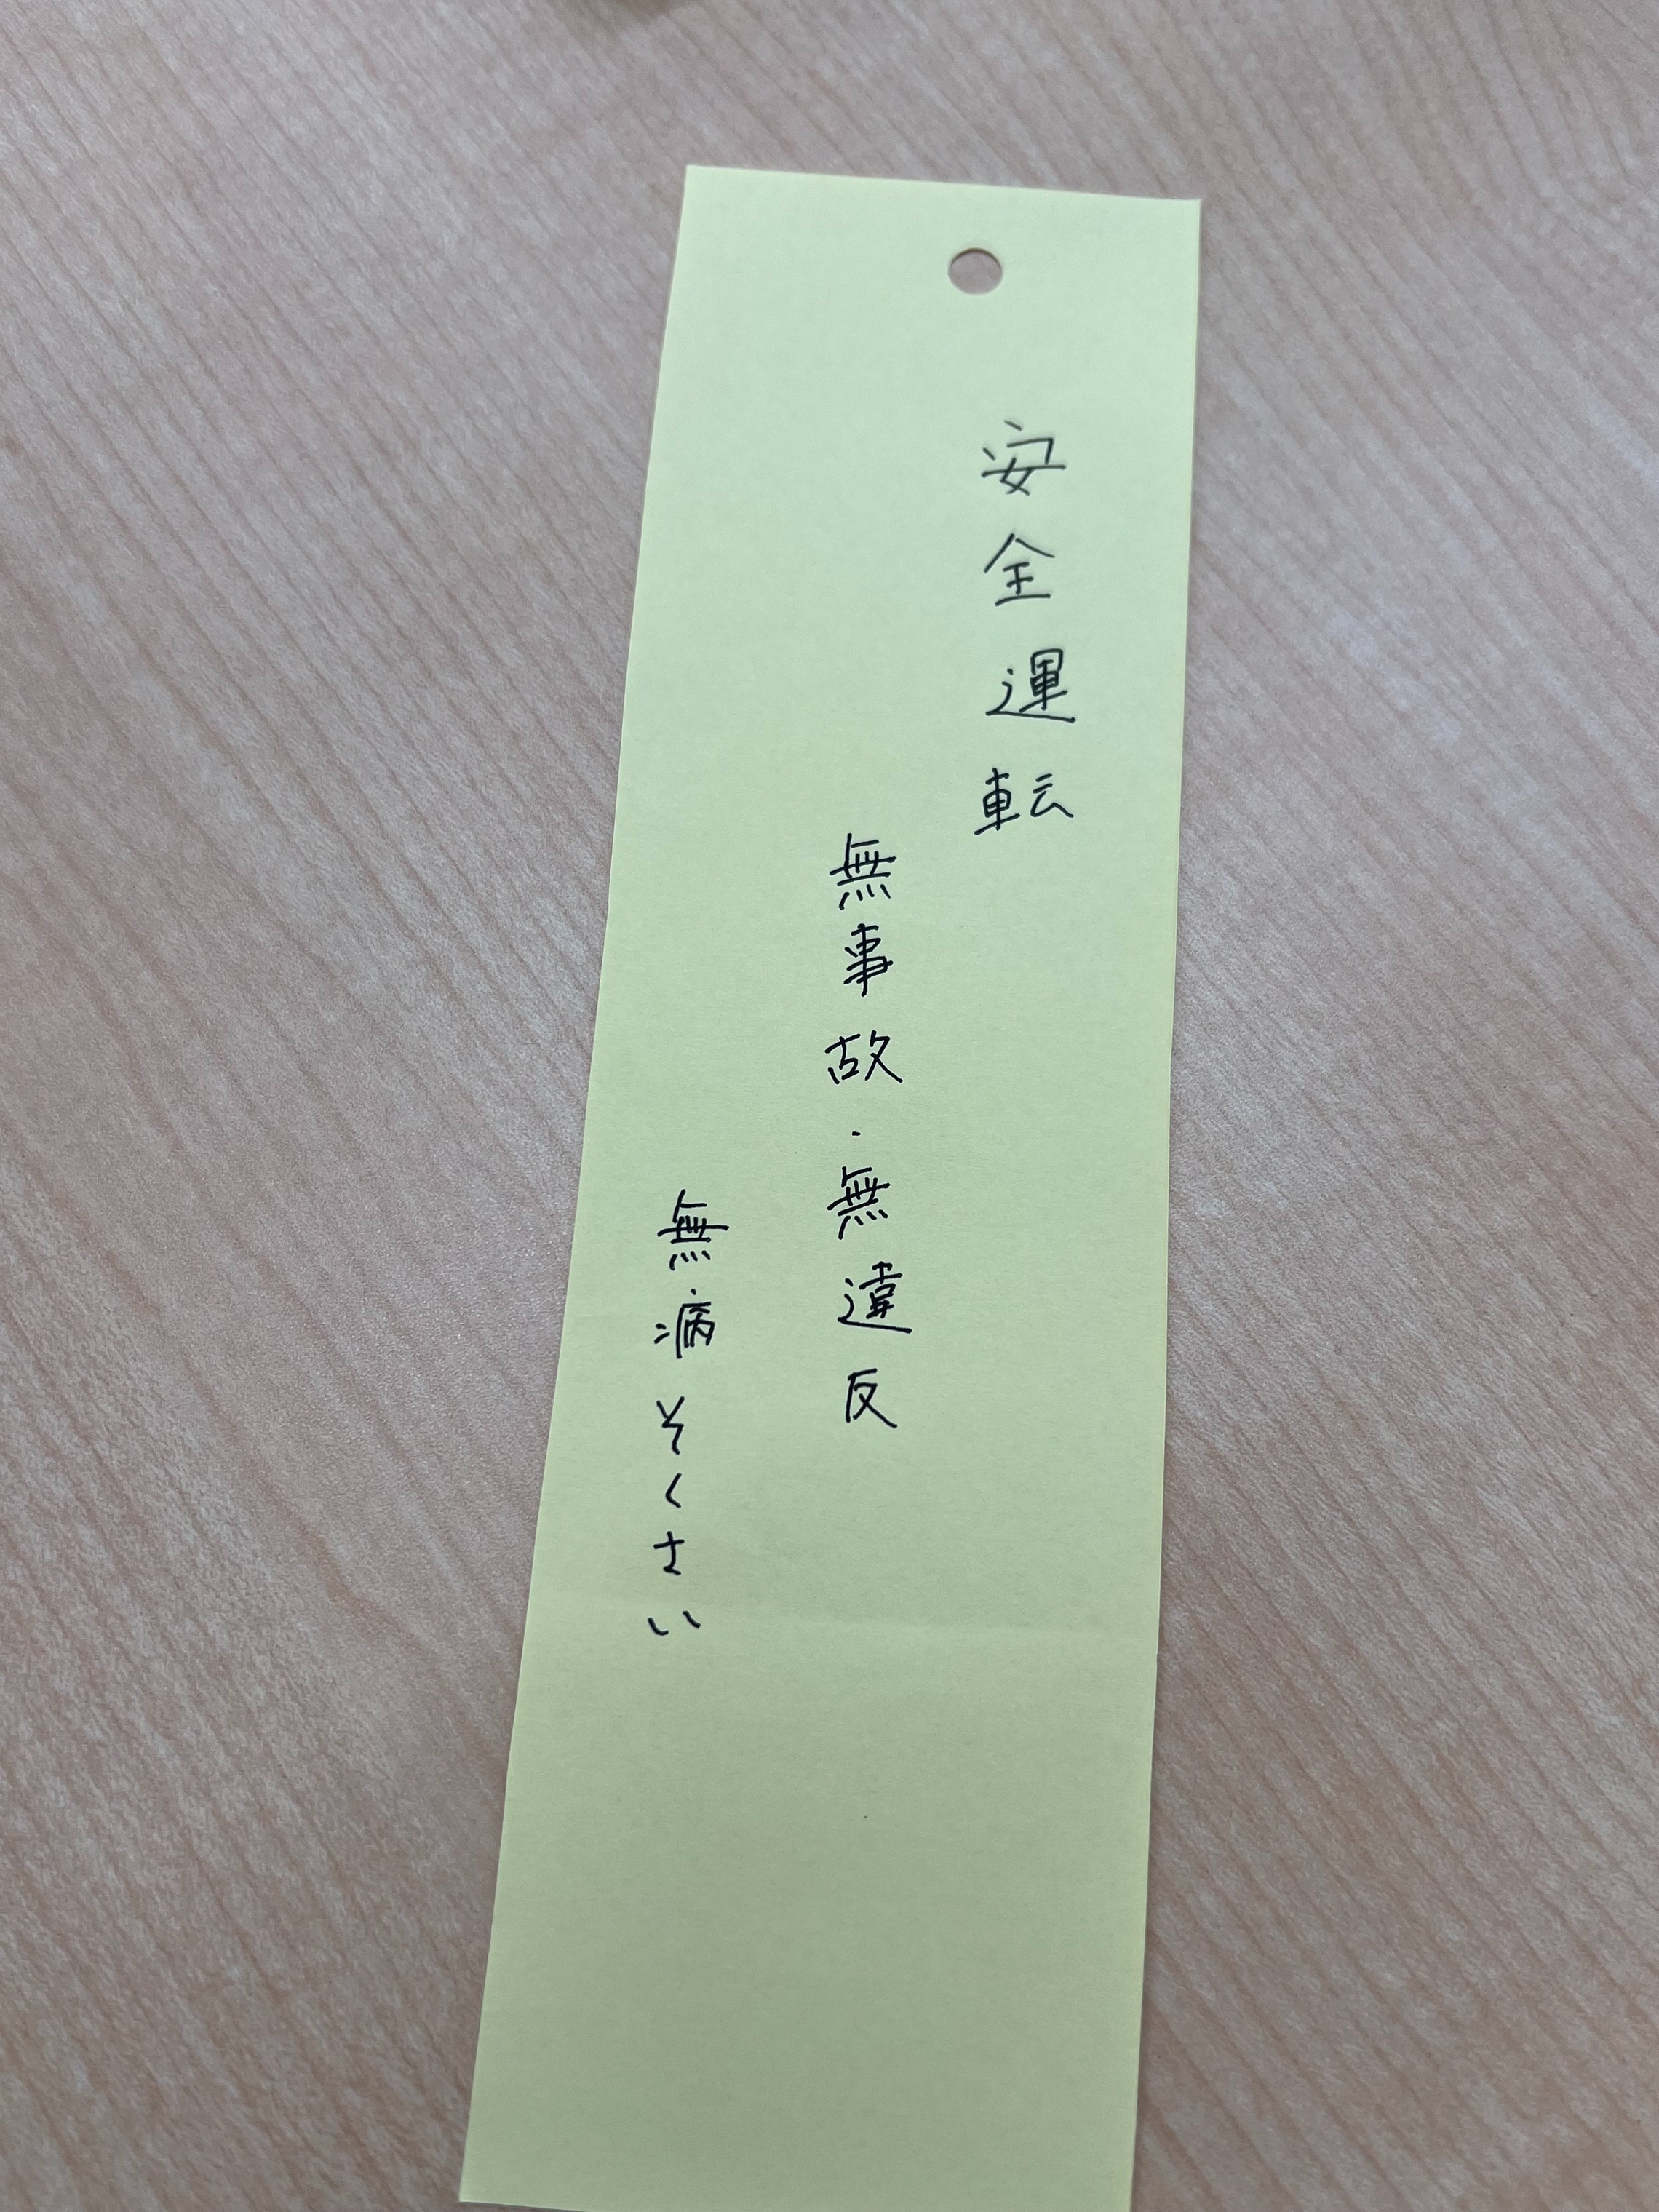 安全運転
無事故・無違反
無病そくさい